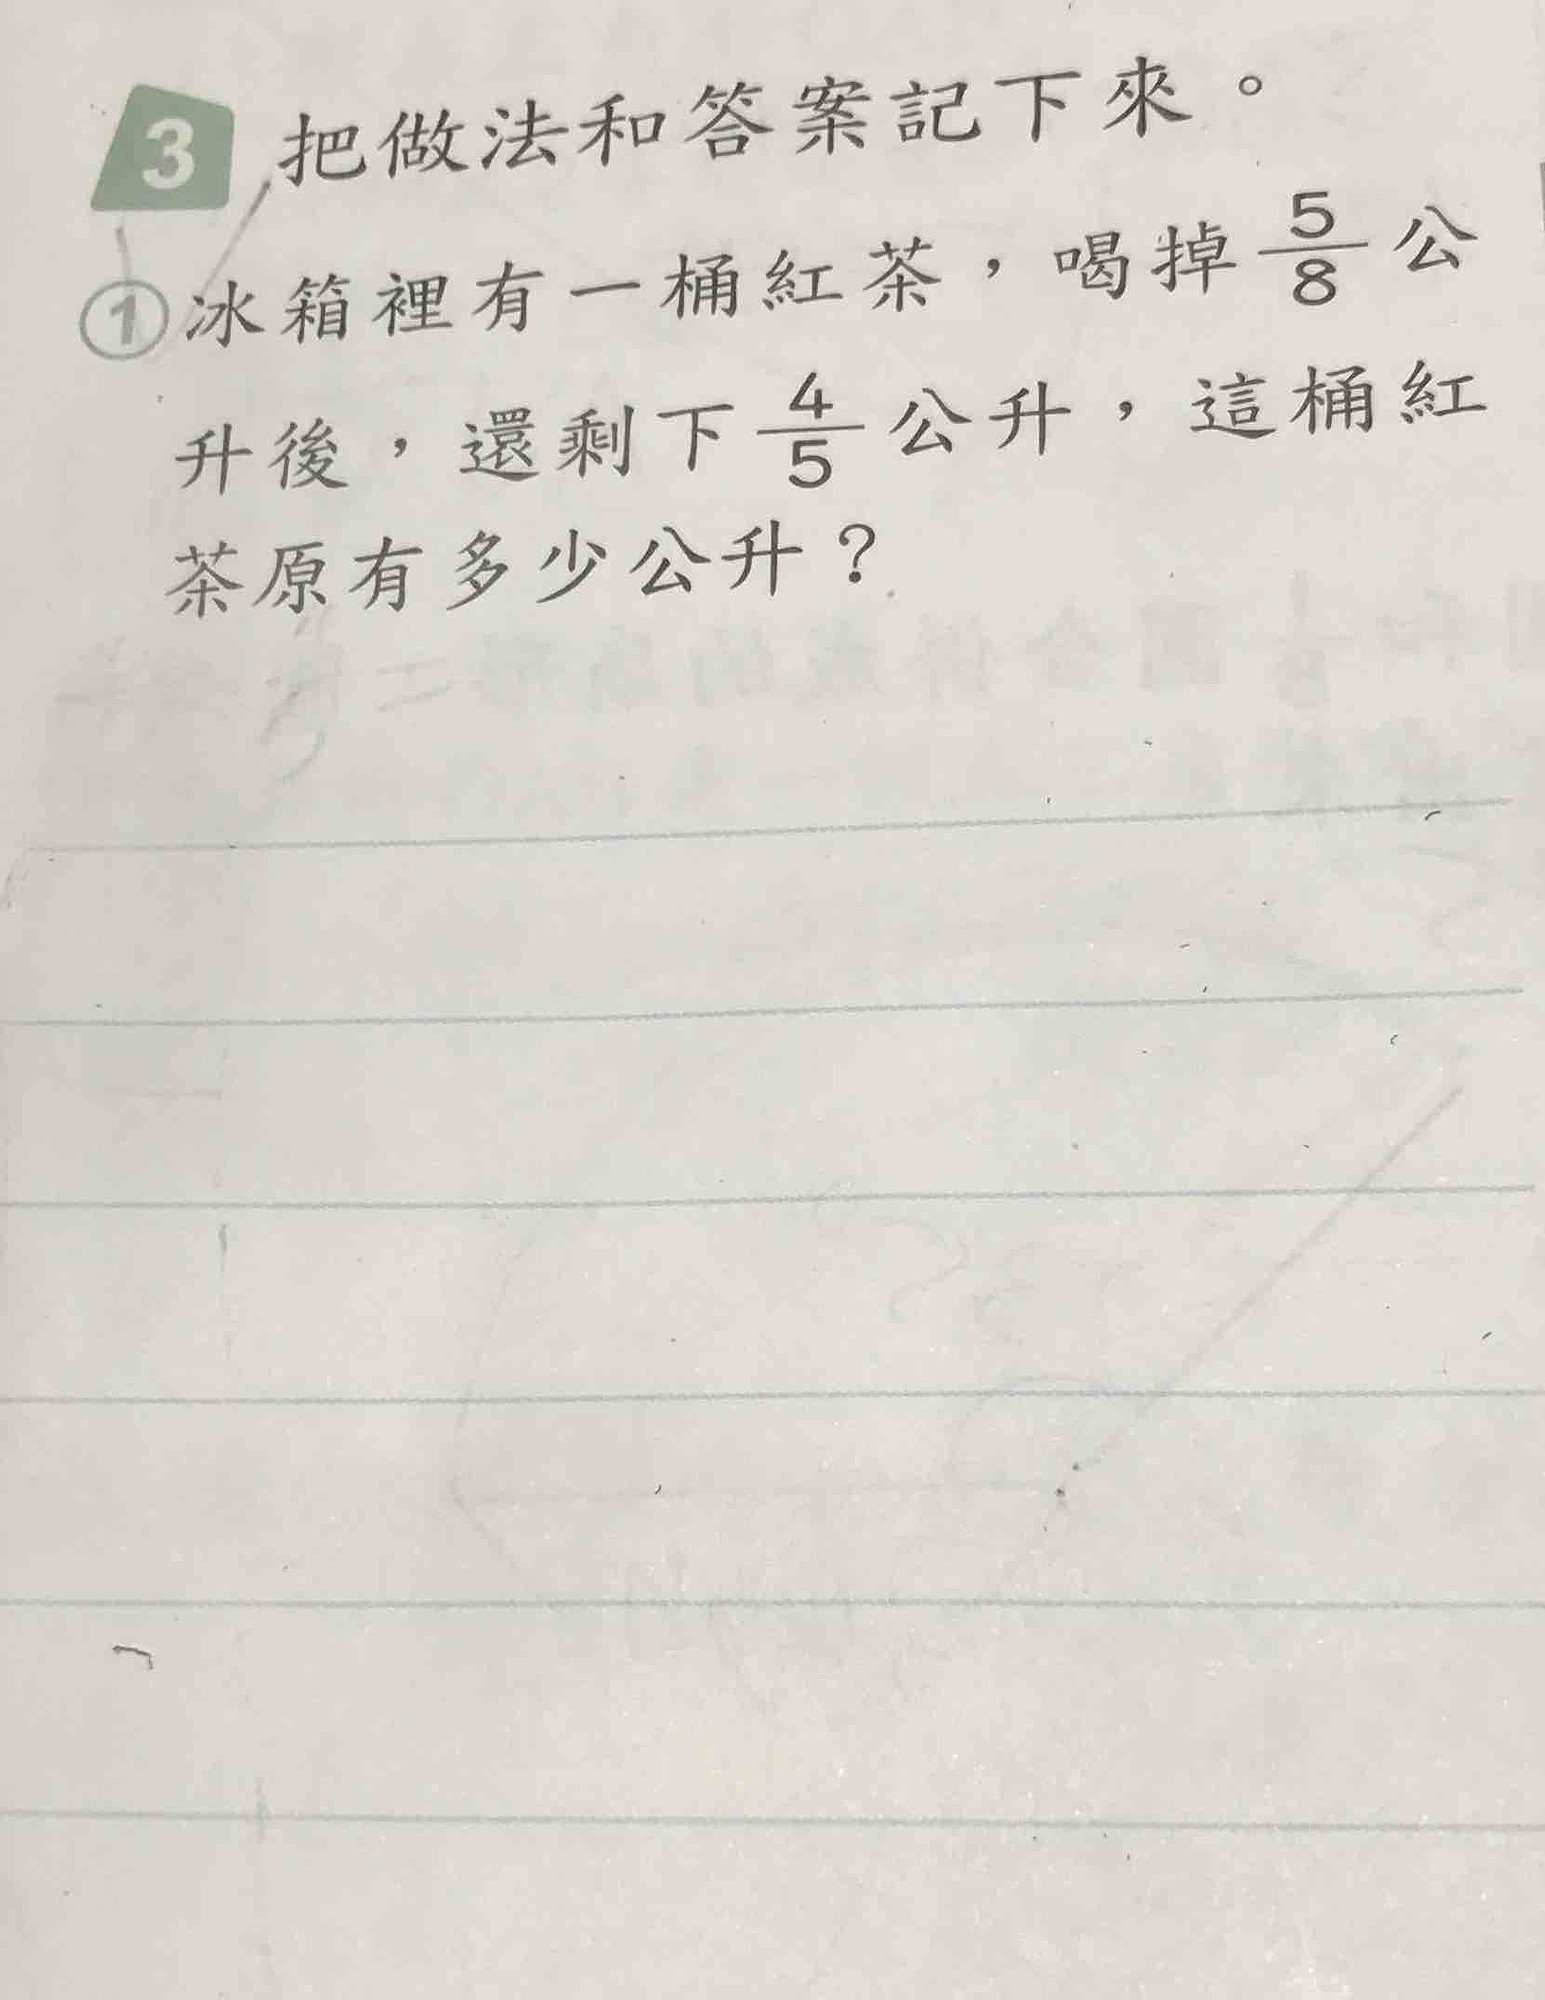 3 把做法和答案記下來。
① 冰箱裡有一桶紅茶，喝掉 5/8 公
升後，還剩下 4/5 公升，這桶紅
茶原有多少公升？